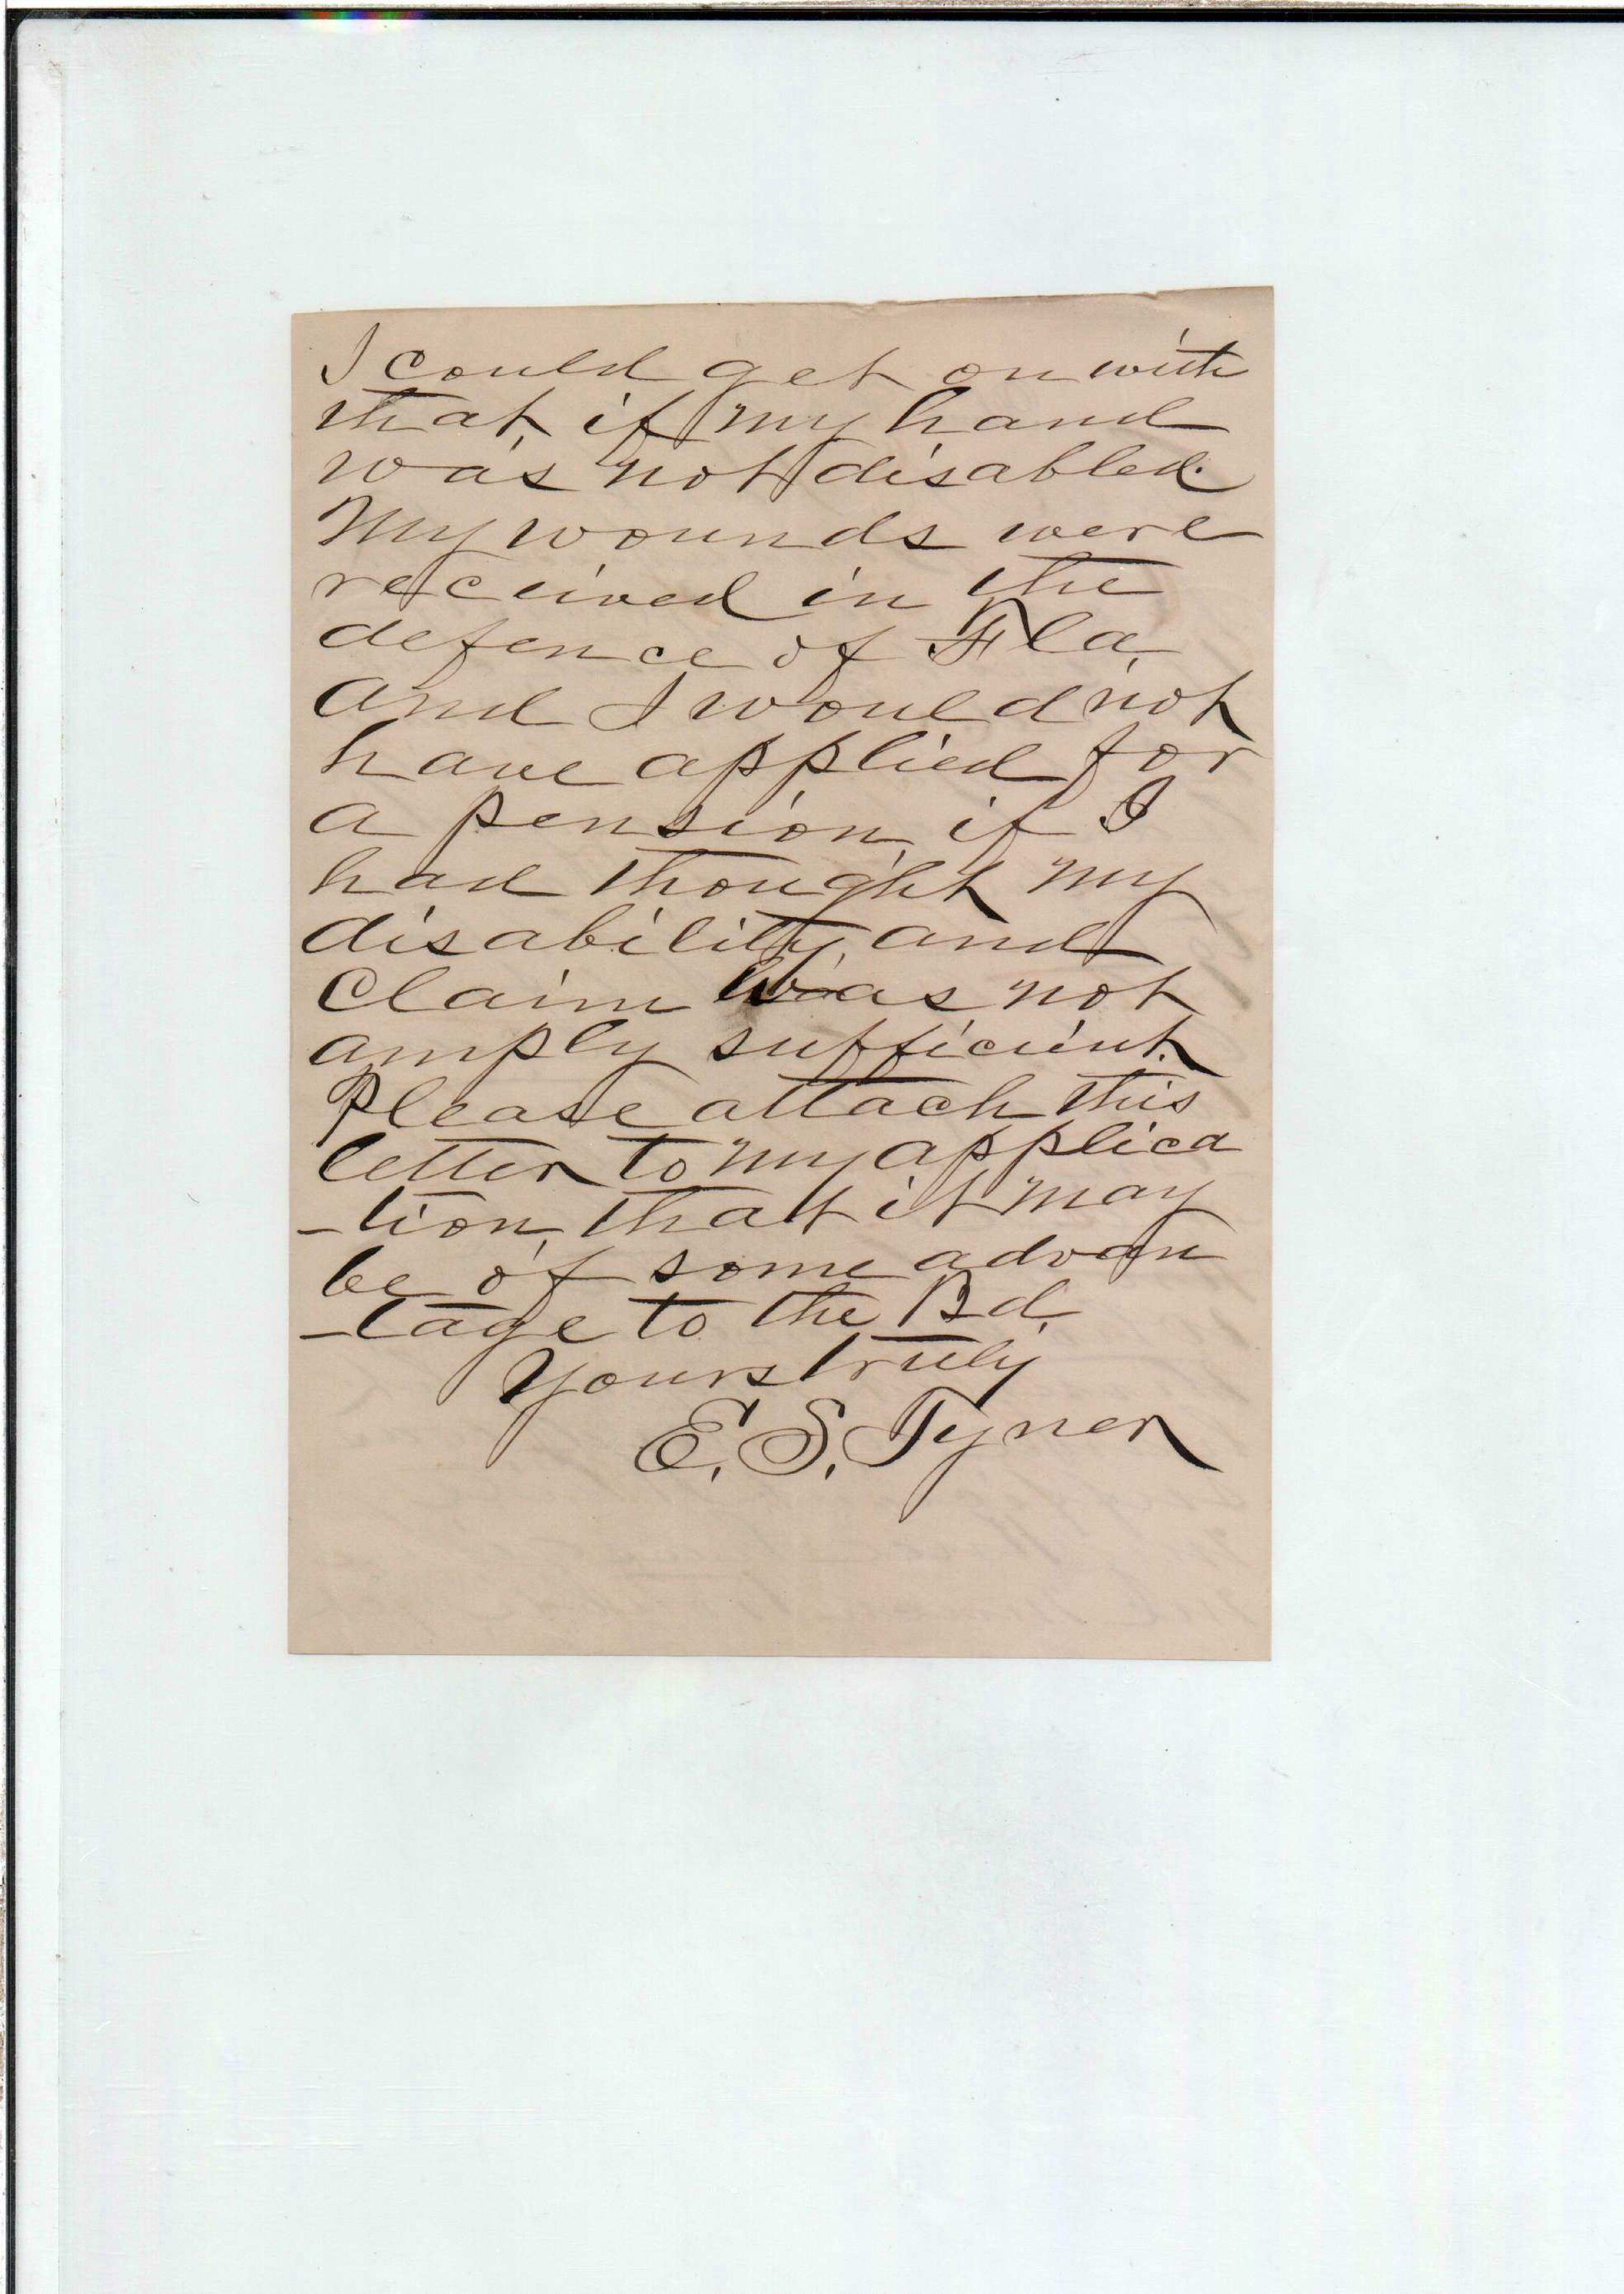 I could get on with
that, if my hand
was not disabled.
My wounds were
received in the
defence of Fla,
and I would not
have applied for
a pension, if I
had thought my
disability, and
claim was not
amply sufficient.
Please attach this
letter to my applica
-tion, that it may
be of some advan
-tage to the Bd.
Yours truly
E. S. Tyner